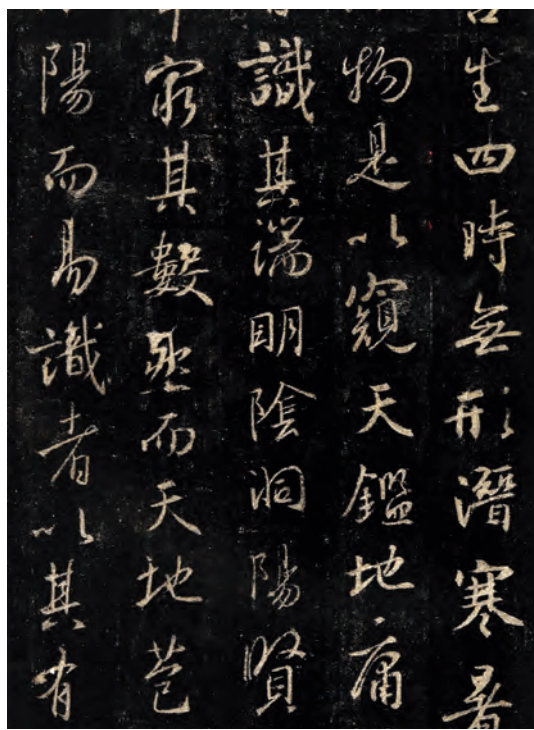 生四時無形潛寒暑
物是以窺天鑑地庸
識其端明陰洞陽賢
窮其數然而天地苞
陽而易識者以其有